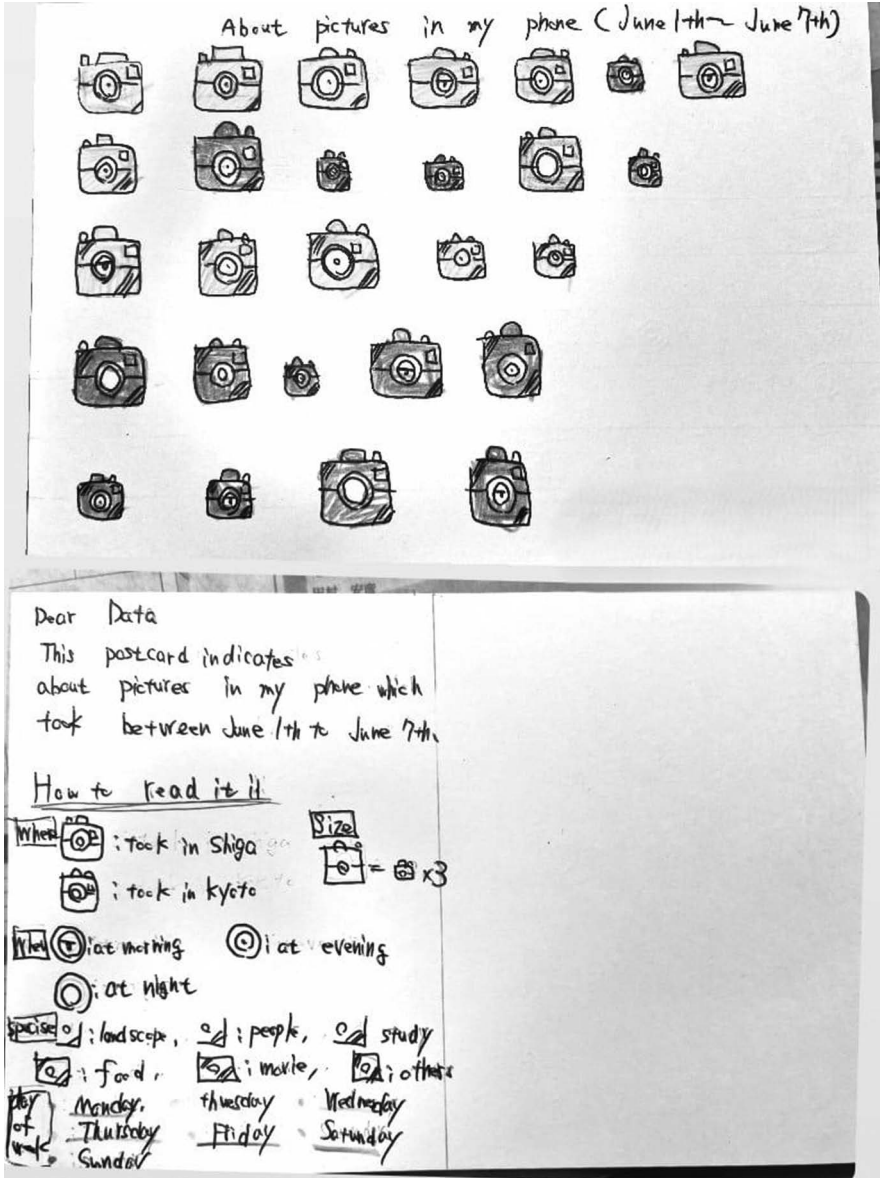 About pictures in my phone (June 1th~ June 7th)
Dear Data
This postcard indicates
about pictures in my phone which
took between June 1th to June 7th.
How to read it!!
: took in Shiga
Size
= x3
: took in kyoto
When : at morning : at evening
: at night
: landscope, : people, : study
: food, : movie, : others
day of week
Monday, thuesday Wednesday
Thursday Friday Saturnday
Sunday